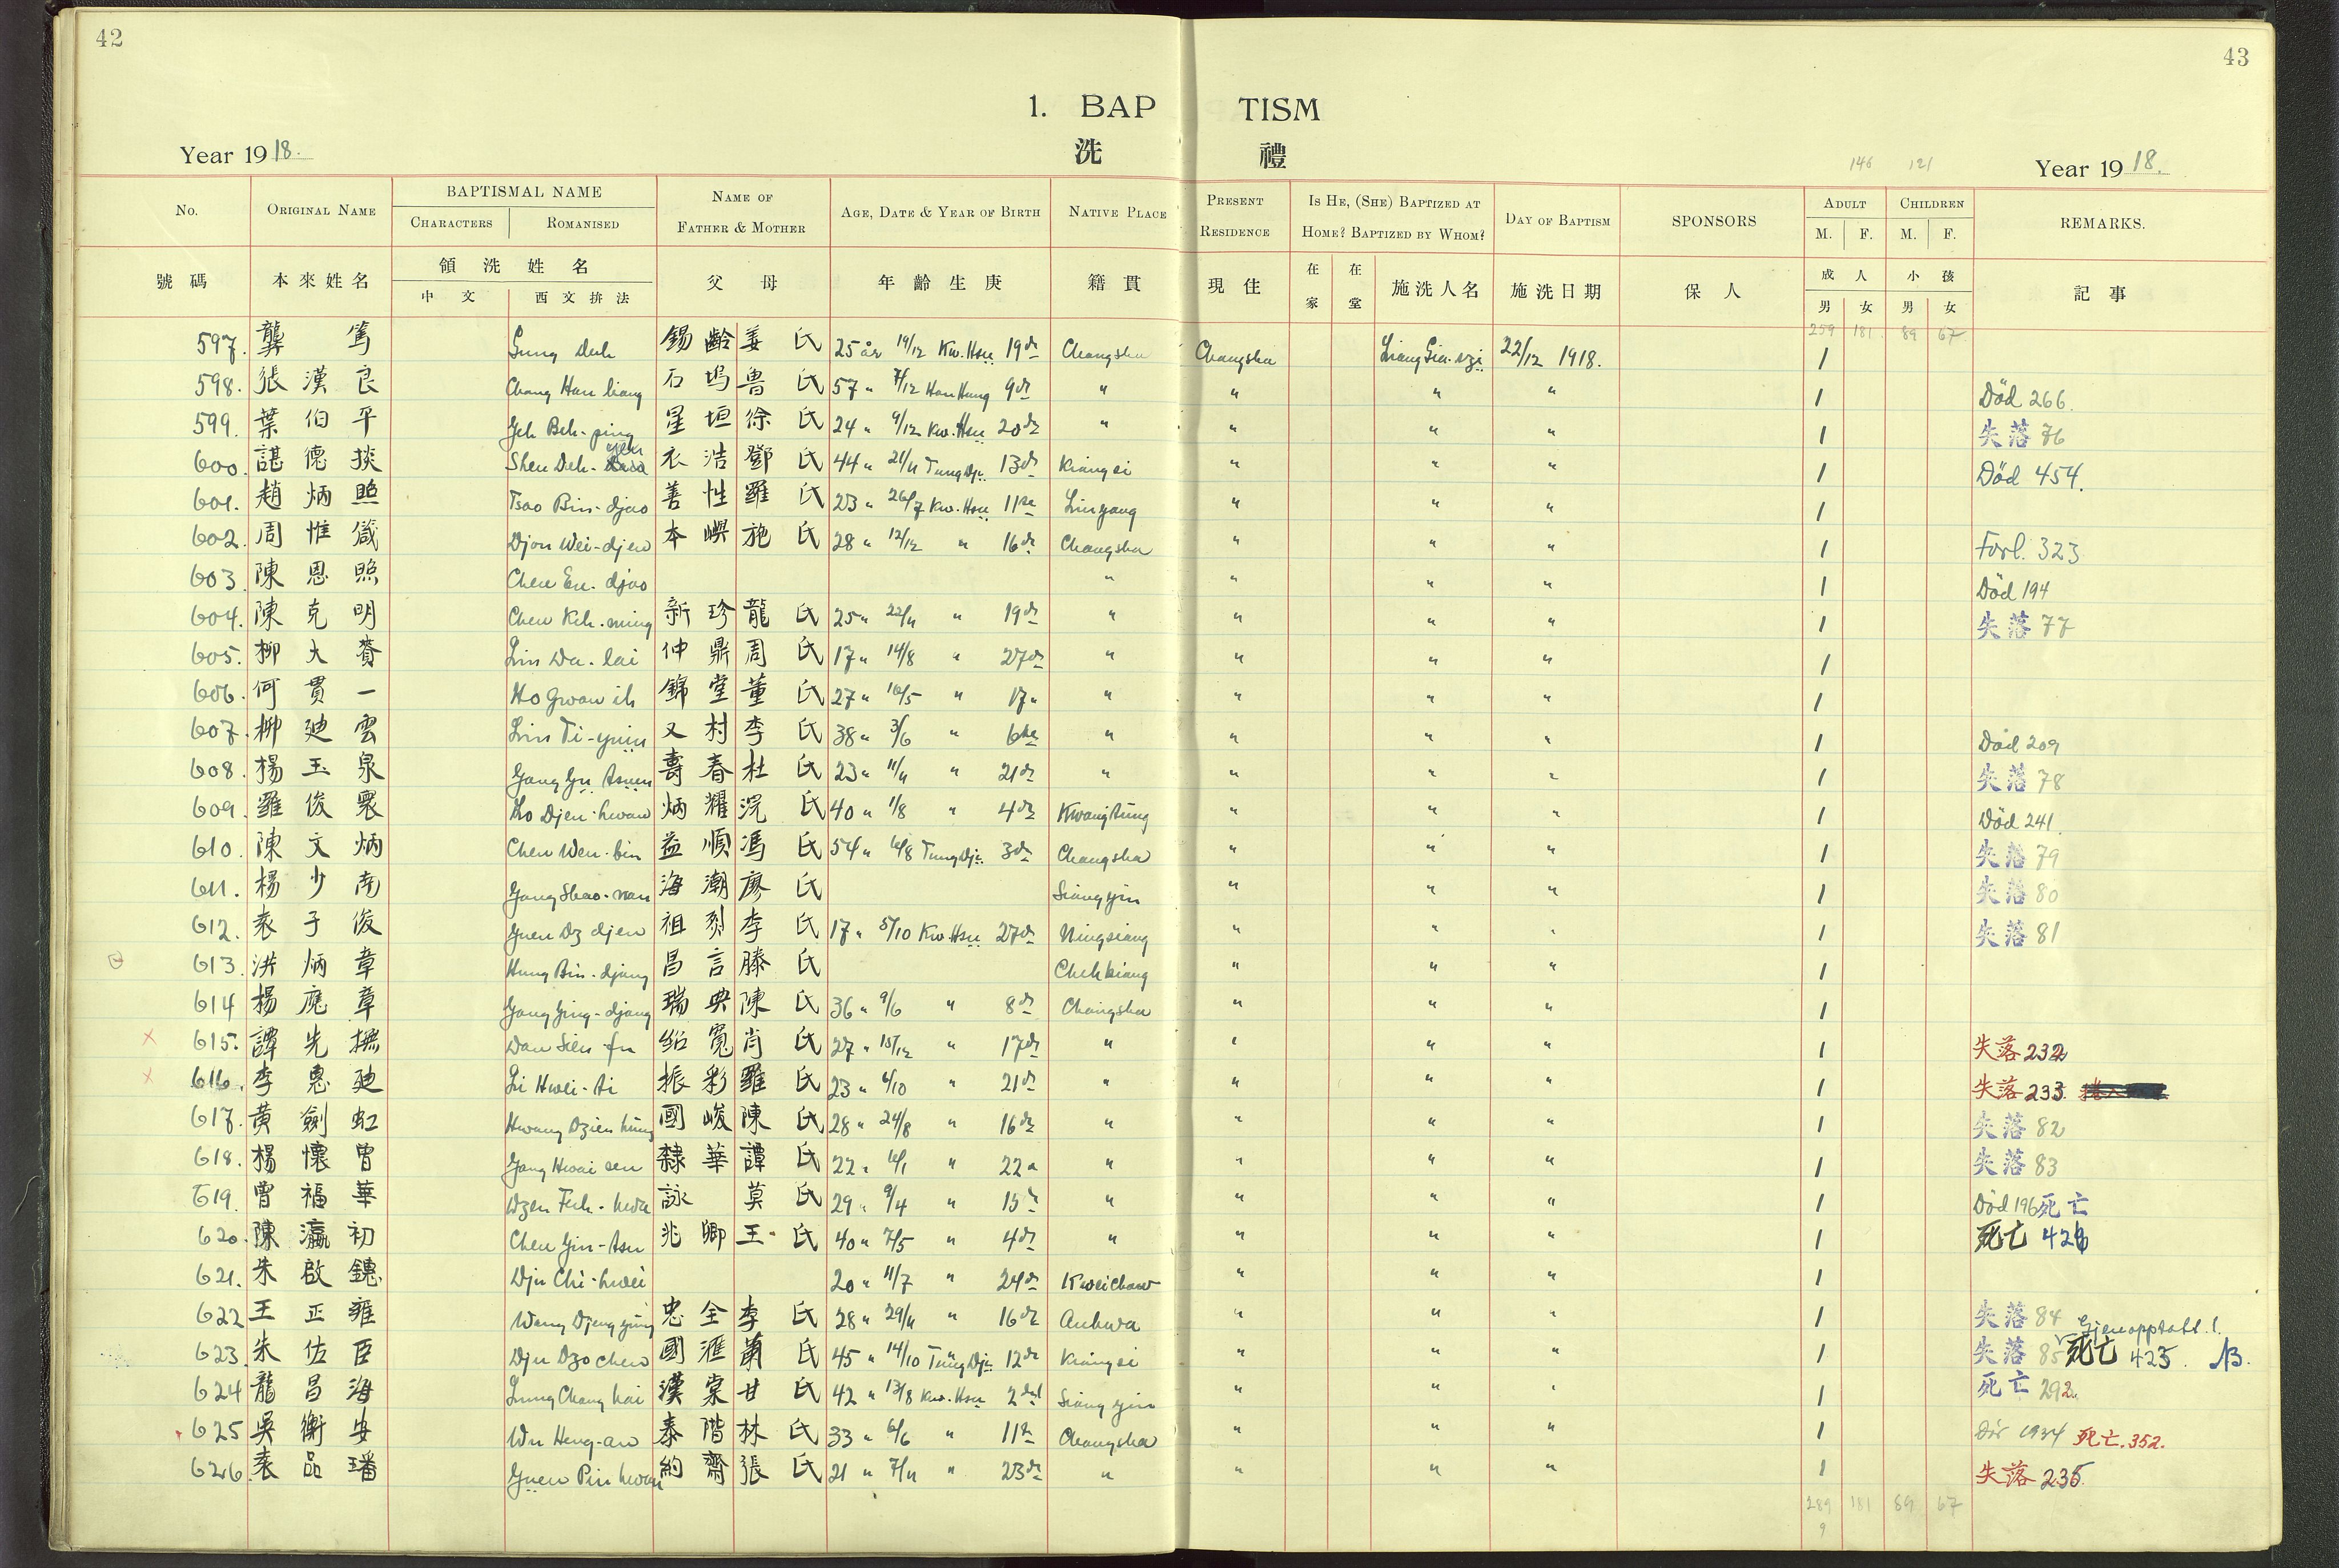 42
43
1. BAP TISM
洗 禮
Year 1918.
146 121
Year 1918.
No. ORIGINAL NAME BAPTISMAL NAME NAME OF FATHER & MOTHER AGE, DATE & YEAR OF BIRTH NATIVE PLACE PRESENT RESIDENCE IS HE, (SHE) BAPTIZED AT HOME? BAPTIZED BY WHOM? DAY OF BAPTISM SPONSORS ADULT CHILDREN REMARKS.
CHARACTERS ROMANISED M. F. M. F.
號碼 本來姓名 領洗姓名 父母 年齡生庚 籍貫 現住 在家 在堂 施洗人名 施洗日期 保人 成人 小孩 記事
中文 西文拚法 男 女 男 女
259 181 89 67
597. 龔 篤 Gung Duh 錫齡 姜氏 25 år 19/12 Kw. Hsü 19de Changsha Changsha 22/12 1918. 1
598. 張漢良 Chang Han liang 石塢 魯氏 57 " 7/12 Han Hung 9de " " " " 1 Död 266.
599. 葉伯平 Yeh Beh-ping 星垣 徐氏 24 " 9/12 Kw. Hsü 20de " " " " 1 失落 76
600. 諶德掞 Shen Deh- yen 衣浩 鄧氏 44 " 21/11 Tung Dji. 13de Kiangsi " " " 1 Död 454.
601. 趙炳照 Tsao Bin-djao 善性 羅氏 23 " 26/7 Kw. Hsü 11te Liuyang " " " 1
602. 周惟 Djou Wei-djen 本嶼 施氏 28 " 12/12 " 16de Changsha " " " 1 Forl. 323
603. 陳恩照 Chen En-djao " " " " 1 Död 194
604. 陳克明 Chen Keh-ming 新珍 龍氏 25 " 22/11 " 19de " " " " 1 失落 77
605. 柳大賚 Liu Da-lai 仲鼎 周氏 17 " 14/8 " 27de " " " " 1
606. 何貫一 Ho Gwan ih 錦堂 董氏 27 " 10/5 " 17 " " " " " 1
607. 柳廸雲 Liu Ti-yuin 又村 李氏 38 " 3/6 " 6te " " " " 1 Död 209
608. 楊玉泉 Yang Yü tsuen 壽春 杜氏 23 " 11/11 " 21de " " " " 1 失落 78
609. 羅俊寰 Lo Djen-hwan 炳耀 浣氏 40 " 1/8 " 4de Kwangtung " " " 1 Död 241.
610. 陳文炳 Chen Wen-bin 益順 馮氏 54 " Tung Dji. 3de Changsha " " " 1 失落 79
611. 楊少南 Yang Shao-nan 海潮 廖氏 Siangyin " " " 1 失落 80
612. 袁子俊 Yuen Dz djen 祖烈 李氏 17 " 5/10 Kw. Hsü 27de Ningsiang " " " 1 失落 81
613. 洪炳章 Hung Bin-djang 昌言 滕氏 Chehkiang " " " 1
614 楊應章 Yang Ying-djang 瑞典 陳氏 36 " 9/6 " 8de Changsha " " " 1
× 615. 譚先撫 Dan Sien-fu 紹寬 肖氏 27 " 15/12 " 17de " " " " 1 失落 232
× 616. 李惠廸 Li Hwei-ti 振彩 羅氏 23 " 6/10 " 21de " " " " 1 失落 233
617. 黃劍虹 Hwang Dzien hung 國峻 陳氏 28 " 24/8 " 16de " " " " 1 失落 82
618. 楊懷曾 Yang Hwai sen 隸華 譚氏 22 " " 22 " " " " " 1 失落 83
619. 曾福華 Dzen Fuh-hwa 詠 莫氏 29 " 9/4 " 15de " " " " 1 Död 196 死亡
620. 陳瀛初 Chen Yin-tsu 兆卿 王氏 40 " 7/5 " 4de " " " " 1 死亡 426
621. 朱啟鏸 Dju Chi-hwei 20 " 11/7 " 24de Kweichow " " " 1
622 王正雍 Wang Djeng yung 忠全 李氏 28 " 29/11 " 16de Anhwa " " " 1 失落 84
623. 朱佐臣 Dju Dzo chen 國滙 蕭氏 45 " 14/10 Tung Dji. 12de Kiangsi " " " 1 失落 85 Gjenopptatt! 死亡 425. NB.
624 龍昌海 Lung Chang hai 漢棠 甘氏 42 " 13/8 Kw. Hsü 2det Siangyin " " " 1 死亡 292.
625 吳衡安 Wu Heng-an 泰階 林氏 33 " 6/6 " 11te Changsha " " " 1 Dör 1934 死亡. 352.
626. 袁品璠 Yuen Pin hwan 約齋 張氏 21 " 7/11 " 23de " " " " 1 失落 235.
289 181 89 67
9